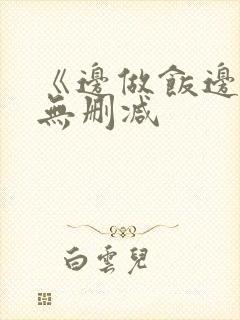 《邊做飯邊
無刪减
白雲兒